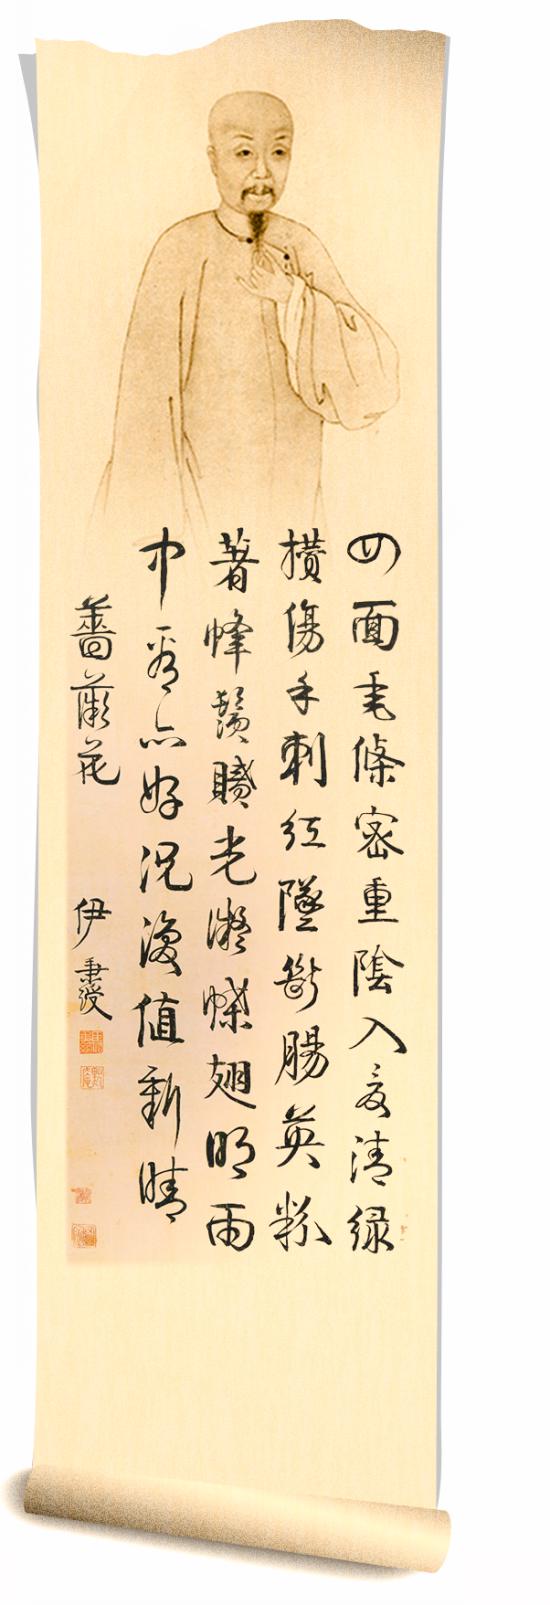 四面垂條密重陰入夏清緑
攢傷手刺紅墜斷腸英粉
著蜂鬚膩光凝蝶翅明雨
中看亦好況復值新晴
薔薇花 伊秉綬